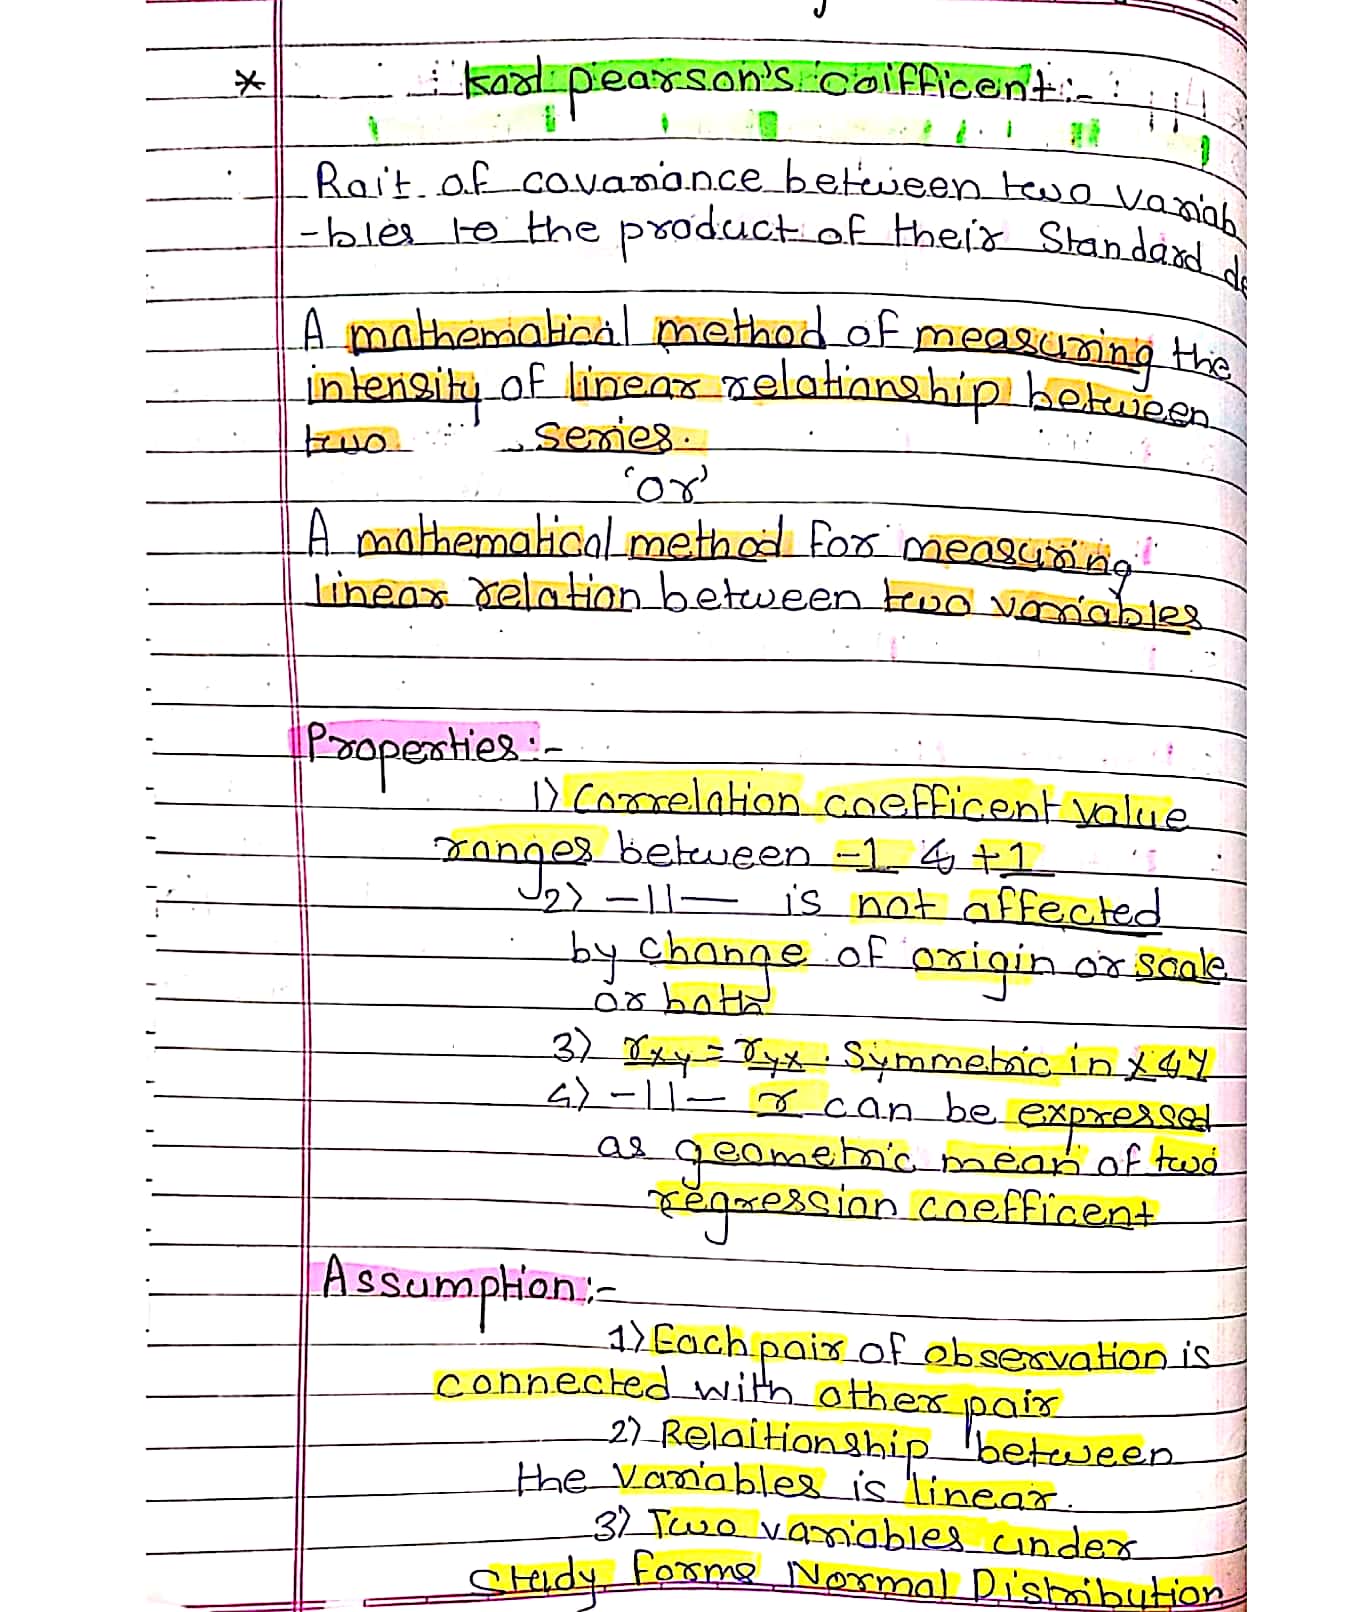 * Karl pearson's coifficent:-
Rait. of covariance between two variab
-bles to the product of their Standard de
A mathematical method of measuring the
intensity of linear relationship between
two series.
'or'
A mathematical method for measuring
linear relation between two variables
Properties:-
1) Correlation coefficent value
ranges between -1 & +1
2) -11- is not affected
by change of origin or scale
or both
3) rxy = ryx . Symmetric in x & y
4) -11- r can be expressed
as geometric mean of two
regression coefficent
Assumption:-
1) Each pair of observation is
connected with other pair
2) Relaitionship between
the variables is linear.
3) Two variables under
Study forms Normal Distribution